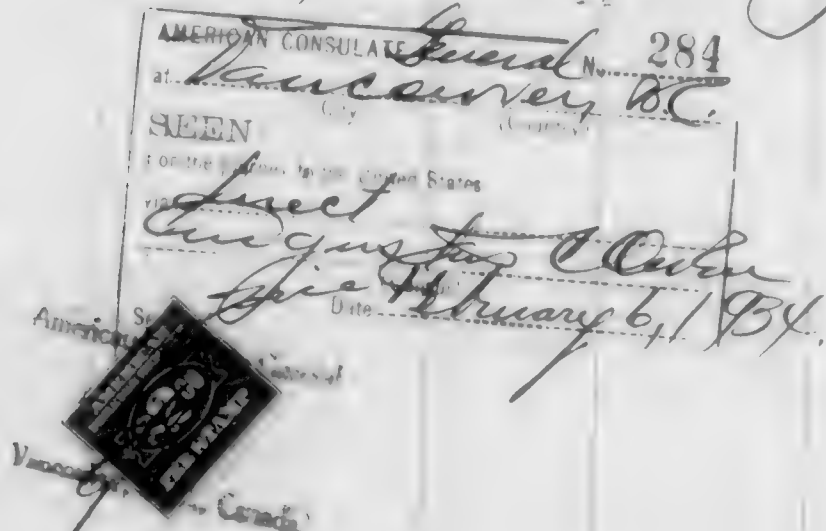 AMERICAN CONSULATE General No. 284
at Vancouver, B.C.
(City) (Country)
SEEN
For the journey to the United States
via direct
Augustus Owen
Date February 6, 1934.
American Consul
AMERICAN
FEE STAMP
Vancouver, Canada